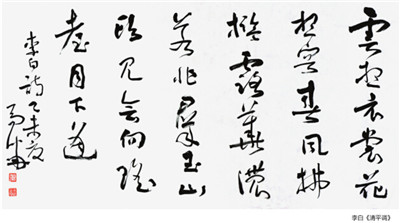 雲想衣裳花
想容春風拂
檻露華濃
若非羣玉山
頭見會向瑤
臺月下逢
李白詩乙未夏
李白《清平调》